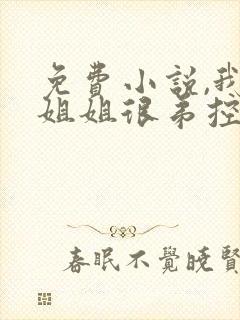 免费小说,我
姐姐很弟控
春眠不覺曉賢